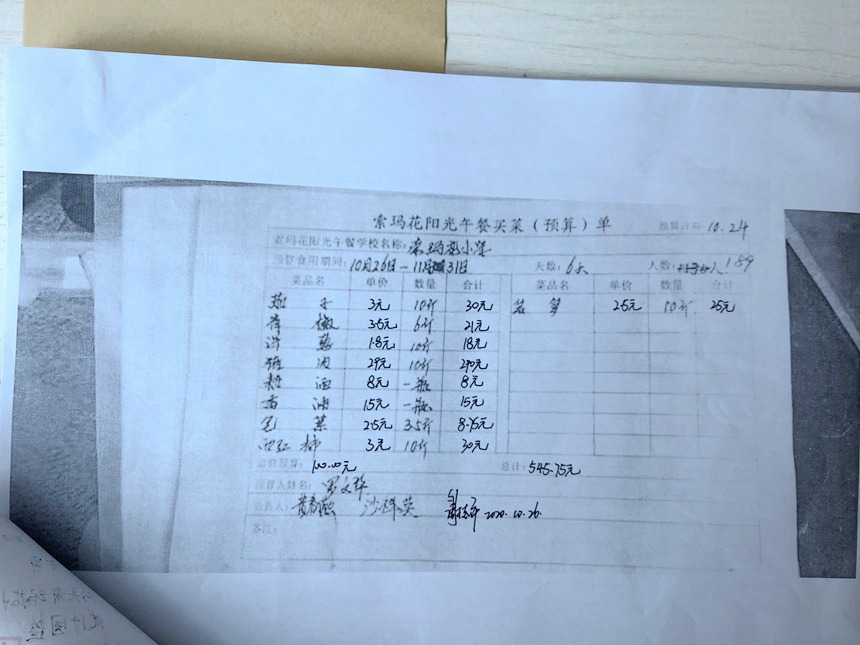 索玛花阳光午餐买菜（预算）单
预算日期: 10.24
索玛花阳光午餐学校名称: 索玛花小学
所数食用期间: 10月26日-11月31日 天数: 6天 人数: 189
菜品名 单价 数量 合计 菜品名 单价 数量 合计
茄子 3元 10斤 30元 莴笋 2.5元 10斤 25元
青椒 3.5元 6斤 21元
洋葱 1.8元 10斤 18元
猪肉 29元 10斤 290元
料酒 8元 一瓶 8元
酱油 15元 一瓶 15元
2.5元 3.5斤 8.75元
西红柿 3元 10斤 30元
运费预算: 100.00元 总计: 545.75元
预算人姓名: 罗文华
负责人: 沙祥英 2020.10.26
备注: